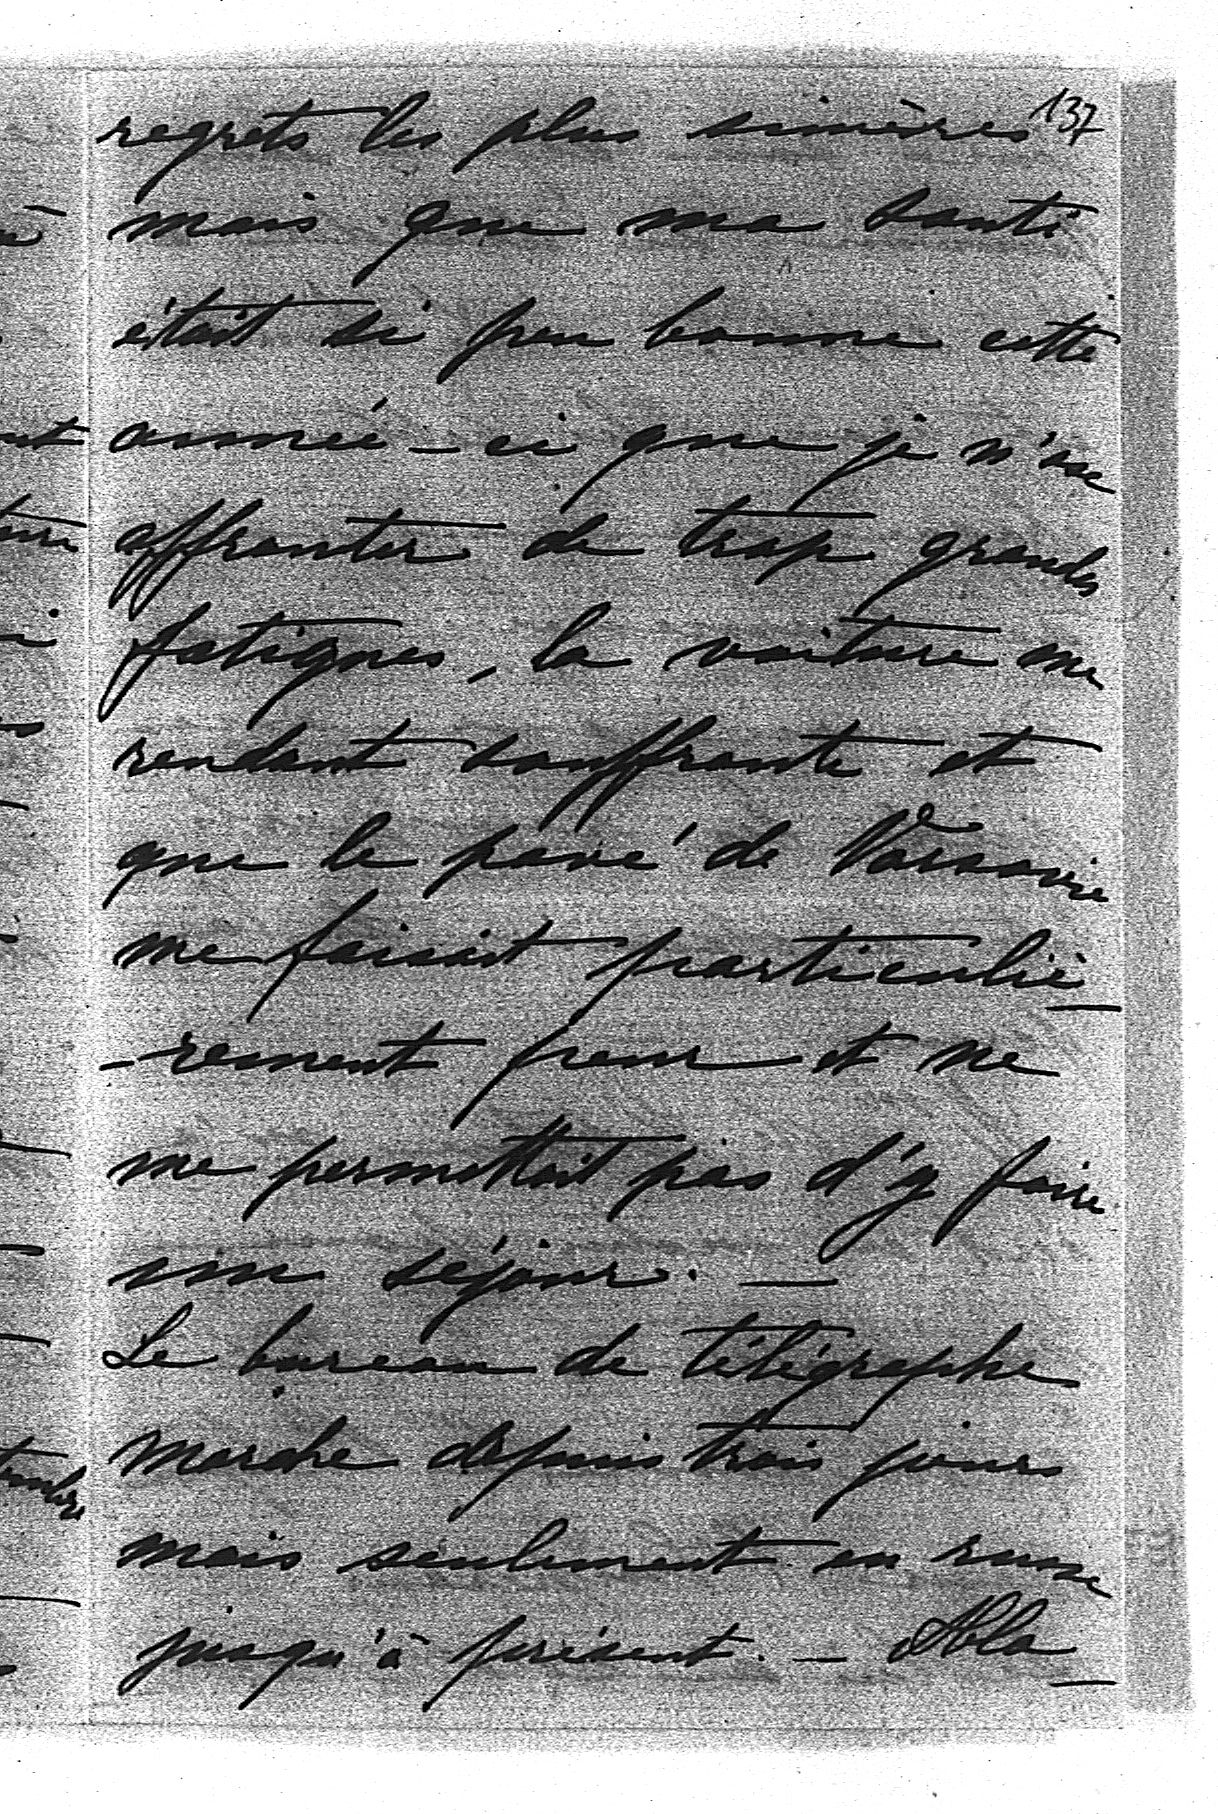 137
regrets les plus sincères
mais que ma santé
était si peu bonne cette
année-ci que je n'ose
affronter de trop grandes
fatigues, la voiture me
rendant souffrante et
que le pavé de Varsovie
me faisait particuliè-
-rement peur et ne
me permettait pas d'y faire
un séjour. —
Le bureau de télégraphe
marche depuis trois jours
mais seulement en russe
jusqu'à présent. — Alla-